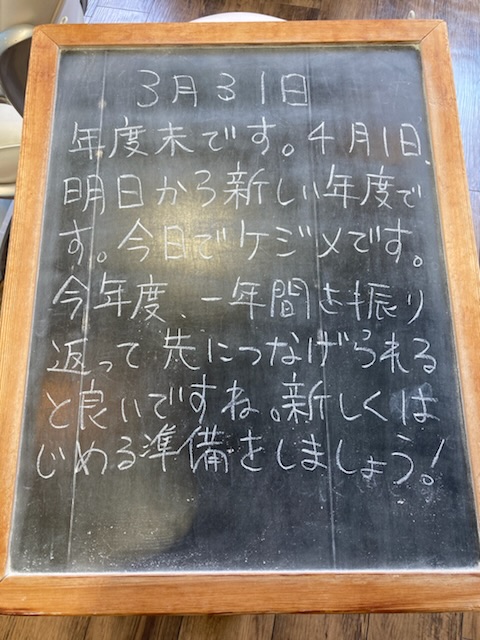 3月31日
年度末です。4月1日、
明日から新しい年度で
す。今日でケジメです。
今年度、一年間を振り
返って先につなげられる
と良いですね。新しくは
じめる準備をしましょう!